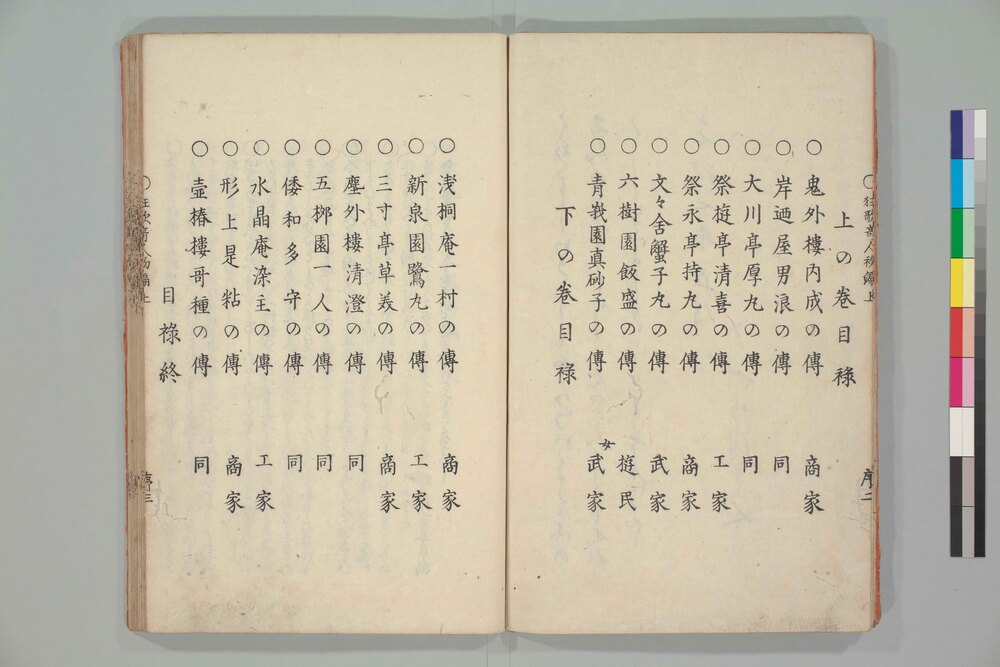 上の巻目禄
○鬼外樓内成の傳 商家
○岸廼屋男浪の傳 同
○大川亭厚丸の傳 同
○祭遊亭清喜の傳 工家
○祭永亭持丸の傳 商家
○文々舎蟹子丸の傳 武家
○六樹園飯盛の傳 遊民
○青峩園真砂子の傳 女武家
下の巻目禄
序二
○浅桐庵一村の傳 商家
○新泉園鷺丸の傳 工家
○三寸亭草美の傳 商家
○塵外樓清澄の傳 同
○五柳園一人の傳 同
○倭和多守の傳 同
○水晶庵染主の傳 工家
○形上是粘の傳 商家
○壷椿樓哥種の傳 同
目禄終